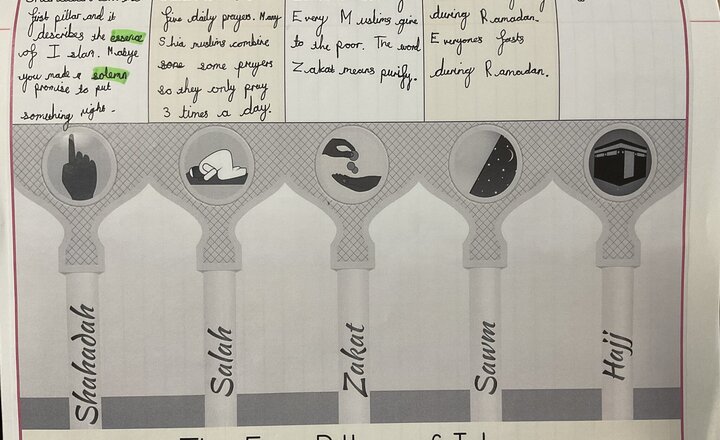 first pillar and it
describes the essence
of Islam. Mabye
you made a solemn
promise to put
something right.
five daily prayers. Many
Shia muslims combine
some some prayers
so they only pray
3 times a day.
Every Muslims give
to the poor. The word
Zakat means purify.
during Ramadan.
Everyones fasts
during Ramadan.
Shahadah
Salah
Zakat
Sawm
Hajj